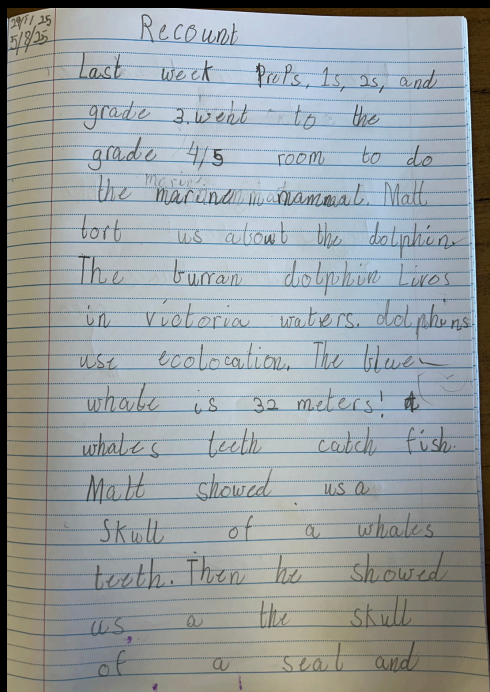 29/7/25
5/8/25
Recount
Last week PrePs, 1s, 2s, and
grade 3. went to the
grade 4/5 room to do
the marine mammal. Matt
tort us about the dolphin
The burran dolphin Livos
in victoria waters. dolphins
use ecolocation. The bluee
whale is 32 meters!
whales teeth catch fish.
Matt showed us a
Skull of a whales
teeth. Then he showed
us a the skull
of a seal and